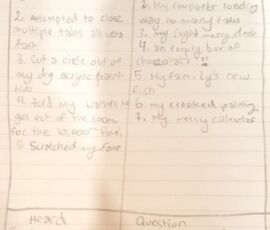 2. Attempted to close
multiple tabs all very
fast
3. Cut a circle out of
my dry acrylic paint
4. told my brother to
get out of the room
for the 10,000th time.
5 Scratched my face
2. My computer loading
way to many tabs
3. my light messy desk
4. an empty box of
chocolates
5. My family's new
fish
6 my crooked painting
7. My messy calendar
Heard
Question